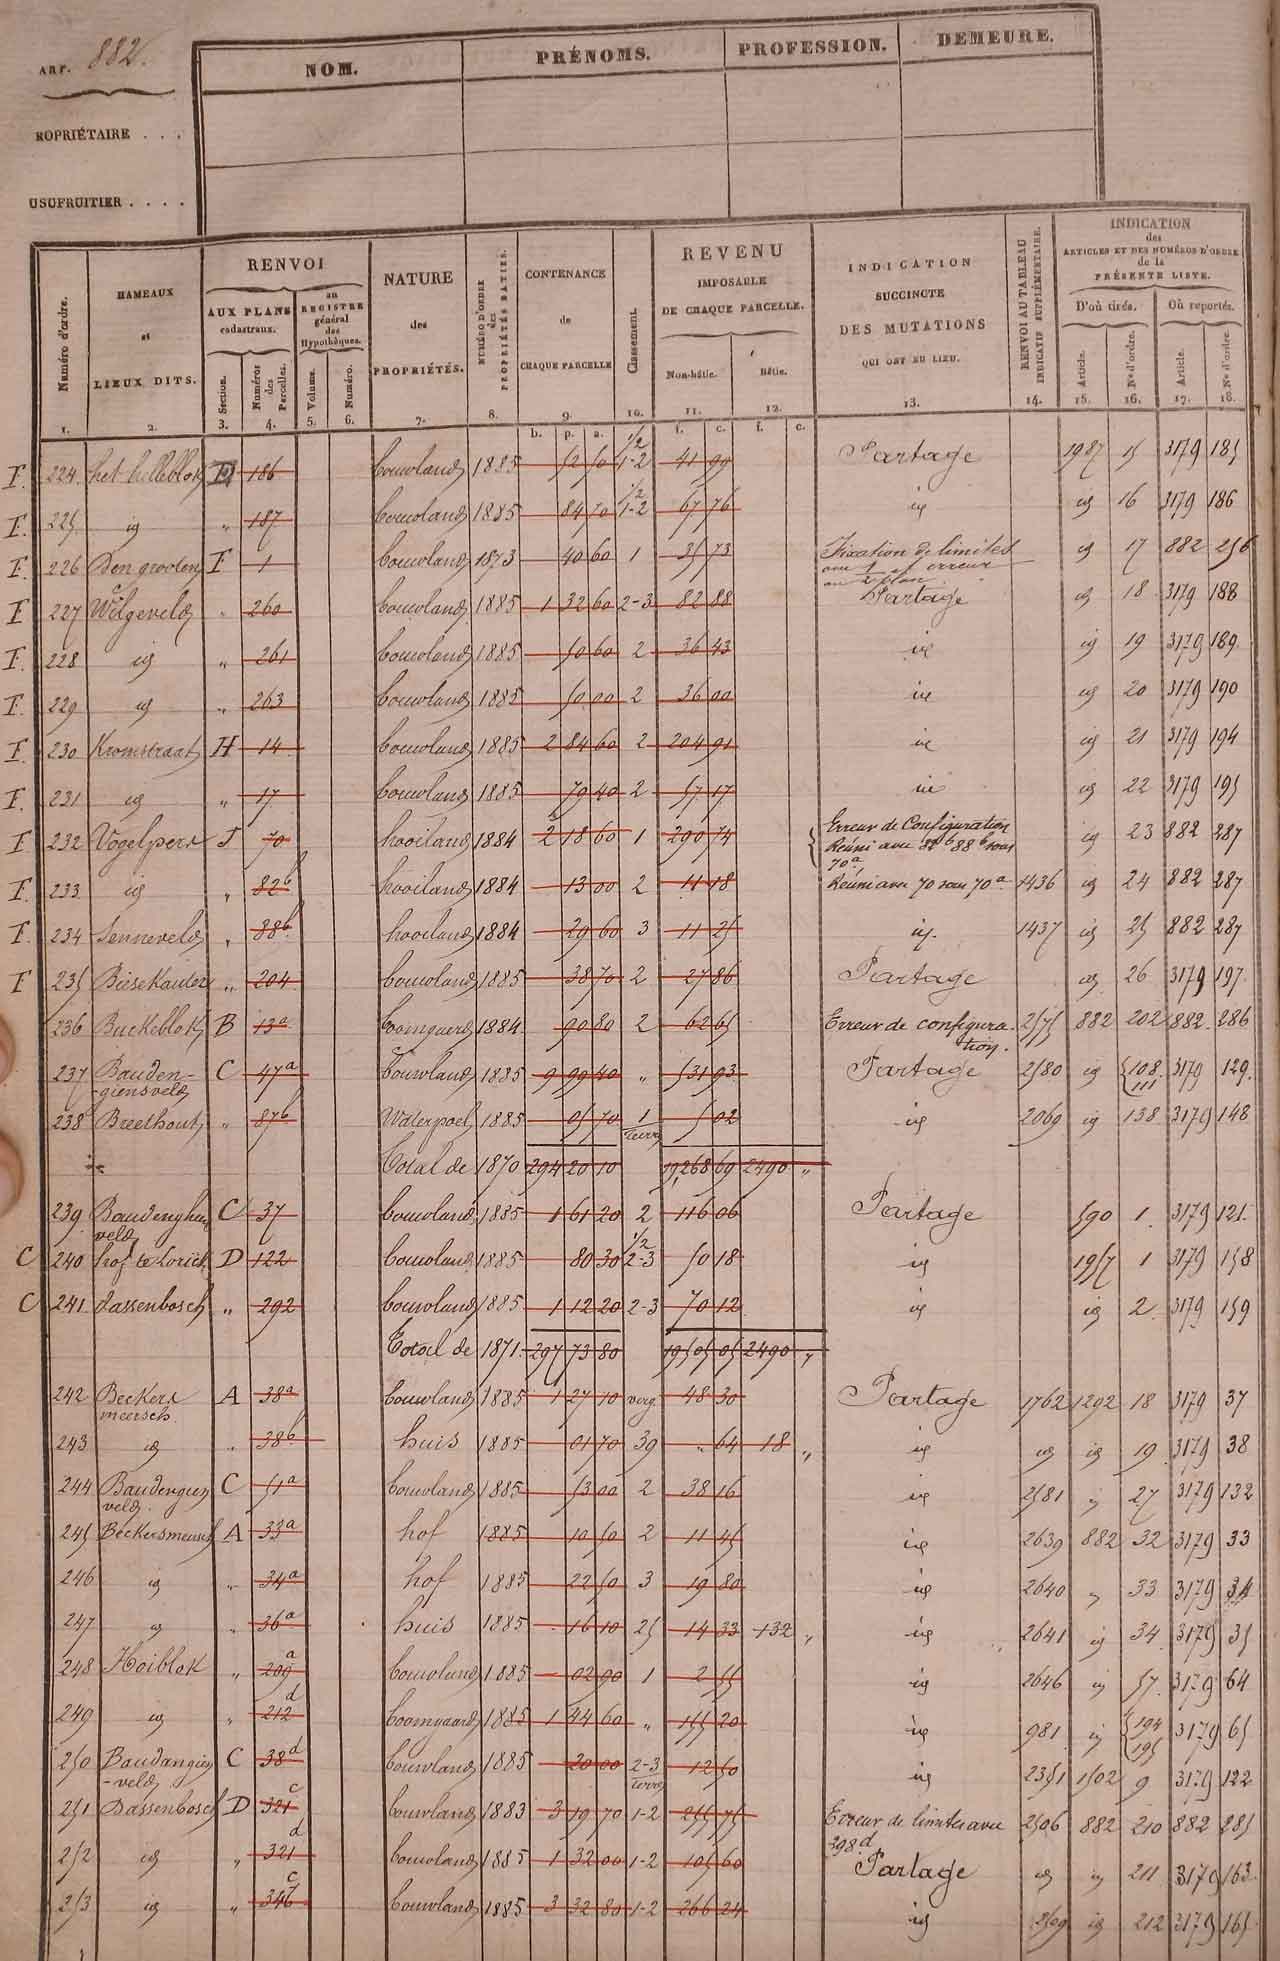 ART. 882.
NOM. PRÉNOMS. PROFESSION. DEMEURE.
ROPRIÉTAIRE . . .
USUFRUITIER . . . .
Numéro d'ordre. HAMEAUX et LIEUX DITS. RENVOI AUX PLANS cadastraux. au REGISTRE général des Hypothèques. NATURE des PROPRIÉTÉS. NUMÉRO D'ORDRE des PROPRIÉTÉS BATIES. CONTENANCE de CHAQUE PARCELLE Classement. REVENU IMPOSABLE DE CHAQUE PARCELLE. INDICATION SUCCINCTE DES MUTATIONS QUI ONT EU LIEU. RENVOI AU TABLEAU INDICATIF SUPPLÉMENTAIRE. INDICATION des ARTICLES ET DES NUMÉROS D'ORDRE de la PRÉSENTE LISTE.
Section. Numéros des Parcelles. Volume. Numéro. Non-bâtie. Bâtie. D'où tirés. Où reportés.
Article. Nos d'ordre. Article. Nos d'ordre.
1. 2. 3. 4. 5. 6. 7. 8. 9. 10. 11. 12. 13. 14. 15. 16. 17. 18.
b. p. a. f. c. f. c.
F. 224 het helleblok 186 bouwland 1885 52 50 1/2 1-2 41 99 Partage 1987 15 3179 185
F. 225 id " 187 bouwland 1885 84 70 1/2 1-2 67 76 id id 16 3179 186
F. 226 Den grooten F 1 bouwland 1873 40 60 1 35 73 Fixation de limites id 17 882 256
F 227 Wilgeveld " 260 bouwland 1885 1 32 60 2-3 82 88 Partage id 18 3179 188
F. 228 id " 261 bouwland 1885 50 60 2 36 43 id id 19 3179 189
F. 229 id " 263 bouwland 1885 50 00 2 36 00 id id 20 3179 190
F. 230 Kromstraat H 14 bouwland 1885 2 84 60 2 204 91 id id 21 3179 194
F. 231 id " 17 bouwland 1885 79 40 2 57 17 id id 22 3179 195
F 232 Vogelpers J 70 hooiland 1884 2 18 60 1 290 74 Erreur de Configuration id 23 882 287
Réuni avec 82b 88b sous 70a
F. 233 id " 82b hooiland 1884 13 00 2 11 18 Réuni avec 70 sous 70a 1436 id 24 882 287
F. 234 Senneveld " 88b hooiland 1884 29 60 3 11 25 id. 1437 id 25 882 287
F 235 " 204 bouwland 1885 38 70 2 27 86 Partage id 26 3179 197
236 Buckeblok B 13a boomgaerd 1884 90 80 2 62 65 Erreur de configuration. 2575 882 202 882 286
237 Baudengiensveld C 47a bouwland 1885 9 99 40 " 531 93 Partage 2580 id {108 111 3179 129
238 Breethout " 87b Waterpoel 1885 05 70 1 5 02 id 2069 id 138 3179 148
Total de 1870 294 20 10 19,268 69 2490 "
239 C 37 bouwland 1885 1 61 20 2 116 06 Partage 590 1 3179 121
C 240 D 122 bouwland 1885 80 30 1/2 2-3 50 18 id 1957 1 3179 158
C 241 dassenbosch " 292 bouwland 1885 1 12 20 2-3 70 12 id id 2 3179 159
Total de 1871 297 73 80 19505 05 2490 "
242 Beckersmeersch A 38a bouwland 1885 1 27 10 verg. 48 30 Partage 1762 1292 18 3179 37
243 id " 38b huis 1885 01 70 39 " 64 18 " id id id 19 3179 38
244 Baudengien veld C 51a bouwland 1885 53 00 2 38 16 id 2581 " 27 3179 132
245 Beckersmeersch A 33a hof 1885 10 50 2 11 45 id 2639 882 32 3179 33
246 id " 34a hof 1885 22 50 3 19 80 id 2640 " 33 3179 34
247 id " 36a huis 1885 16 10 25 14 33 132 " id 2641 id 34 3179 35
248 Hoiblok " 209a bouwland 1885 02 90 1 2 55 id 2646 id 57 3179 64
249 id " 212d boomgaard 1885 1 44 60 " 155 20 id 981 id {194 195 3179 65
250 Baudangien-veld C 38d bouwland 1885 20 00 2-3 12 50 id 2351 1502 9 3179 122
251 Dassenbosch D 321c bouwland 1883 3 19 70 1-2 255 75 Erreur de limites avec 298d 2506 882 210 882 285
252 id " 321d bouwland 1885 1 32 00 1-2 105 60 Partage id id 211 3179 163
253 id " 346c bouwland 1885 3 32 80 1-2 266 24 id 2509 id 212 3179 165